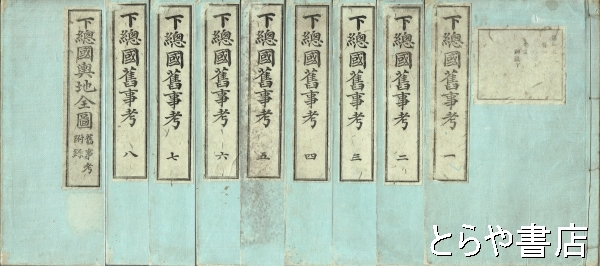 下總國舊事考 一
下總國舊事考 二
下總國舊事考 三
下總國舊事考 四
下總國舊事考 五
下總國舊事考 六
下總國舊事考 七
下總國舊事考 八
下總國輿地全圖 舊事考
附錄
とらや書店